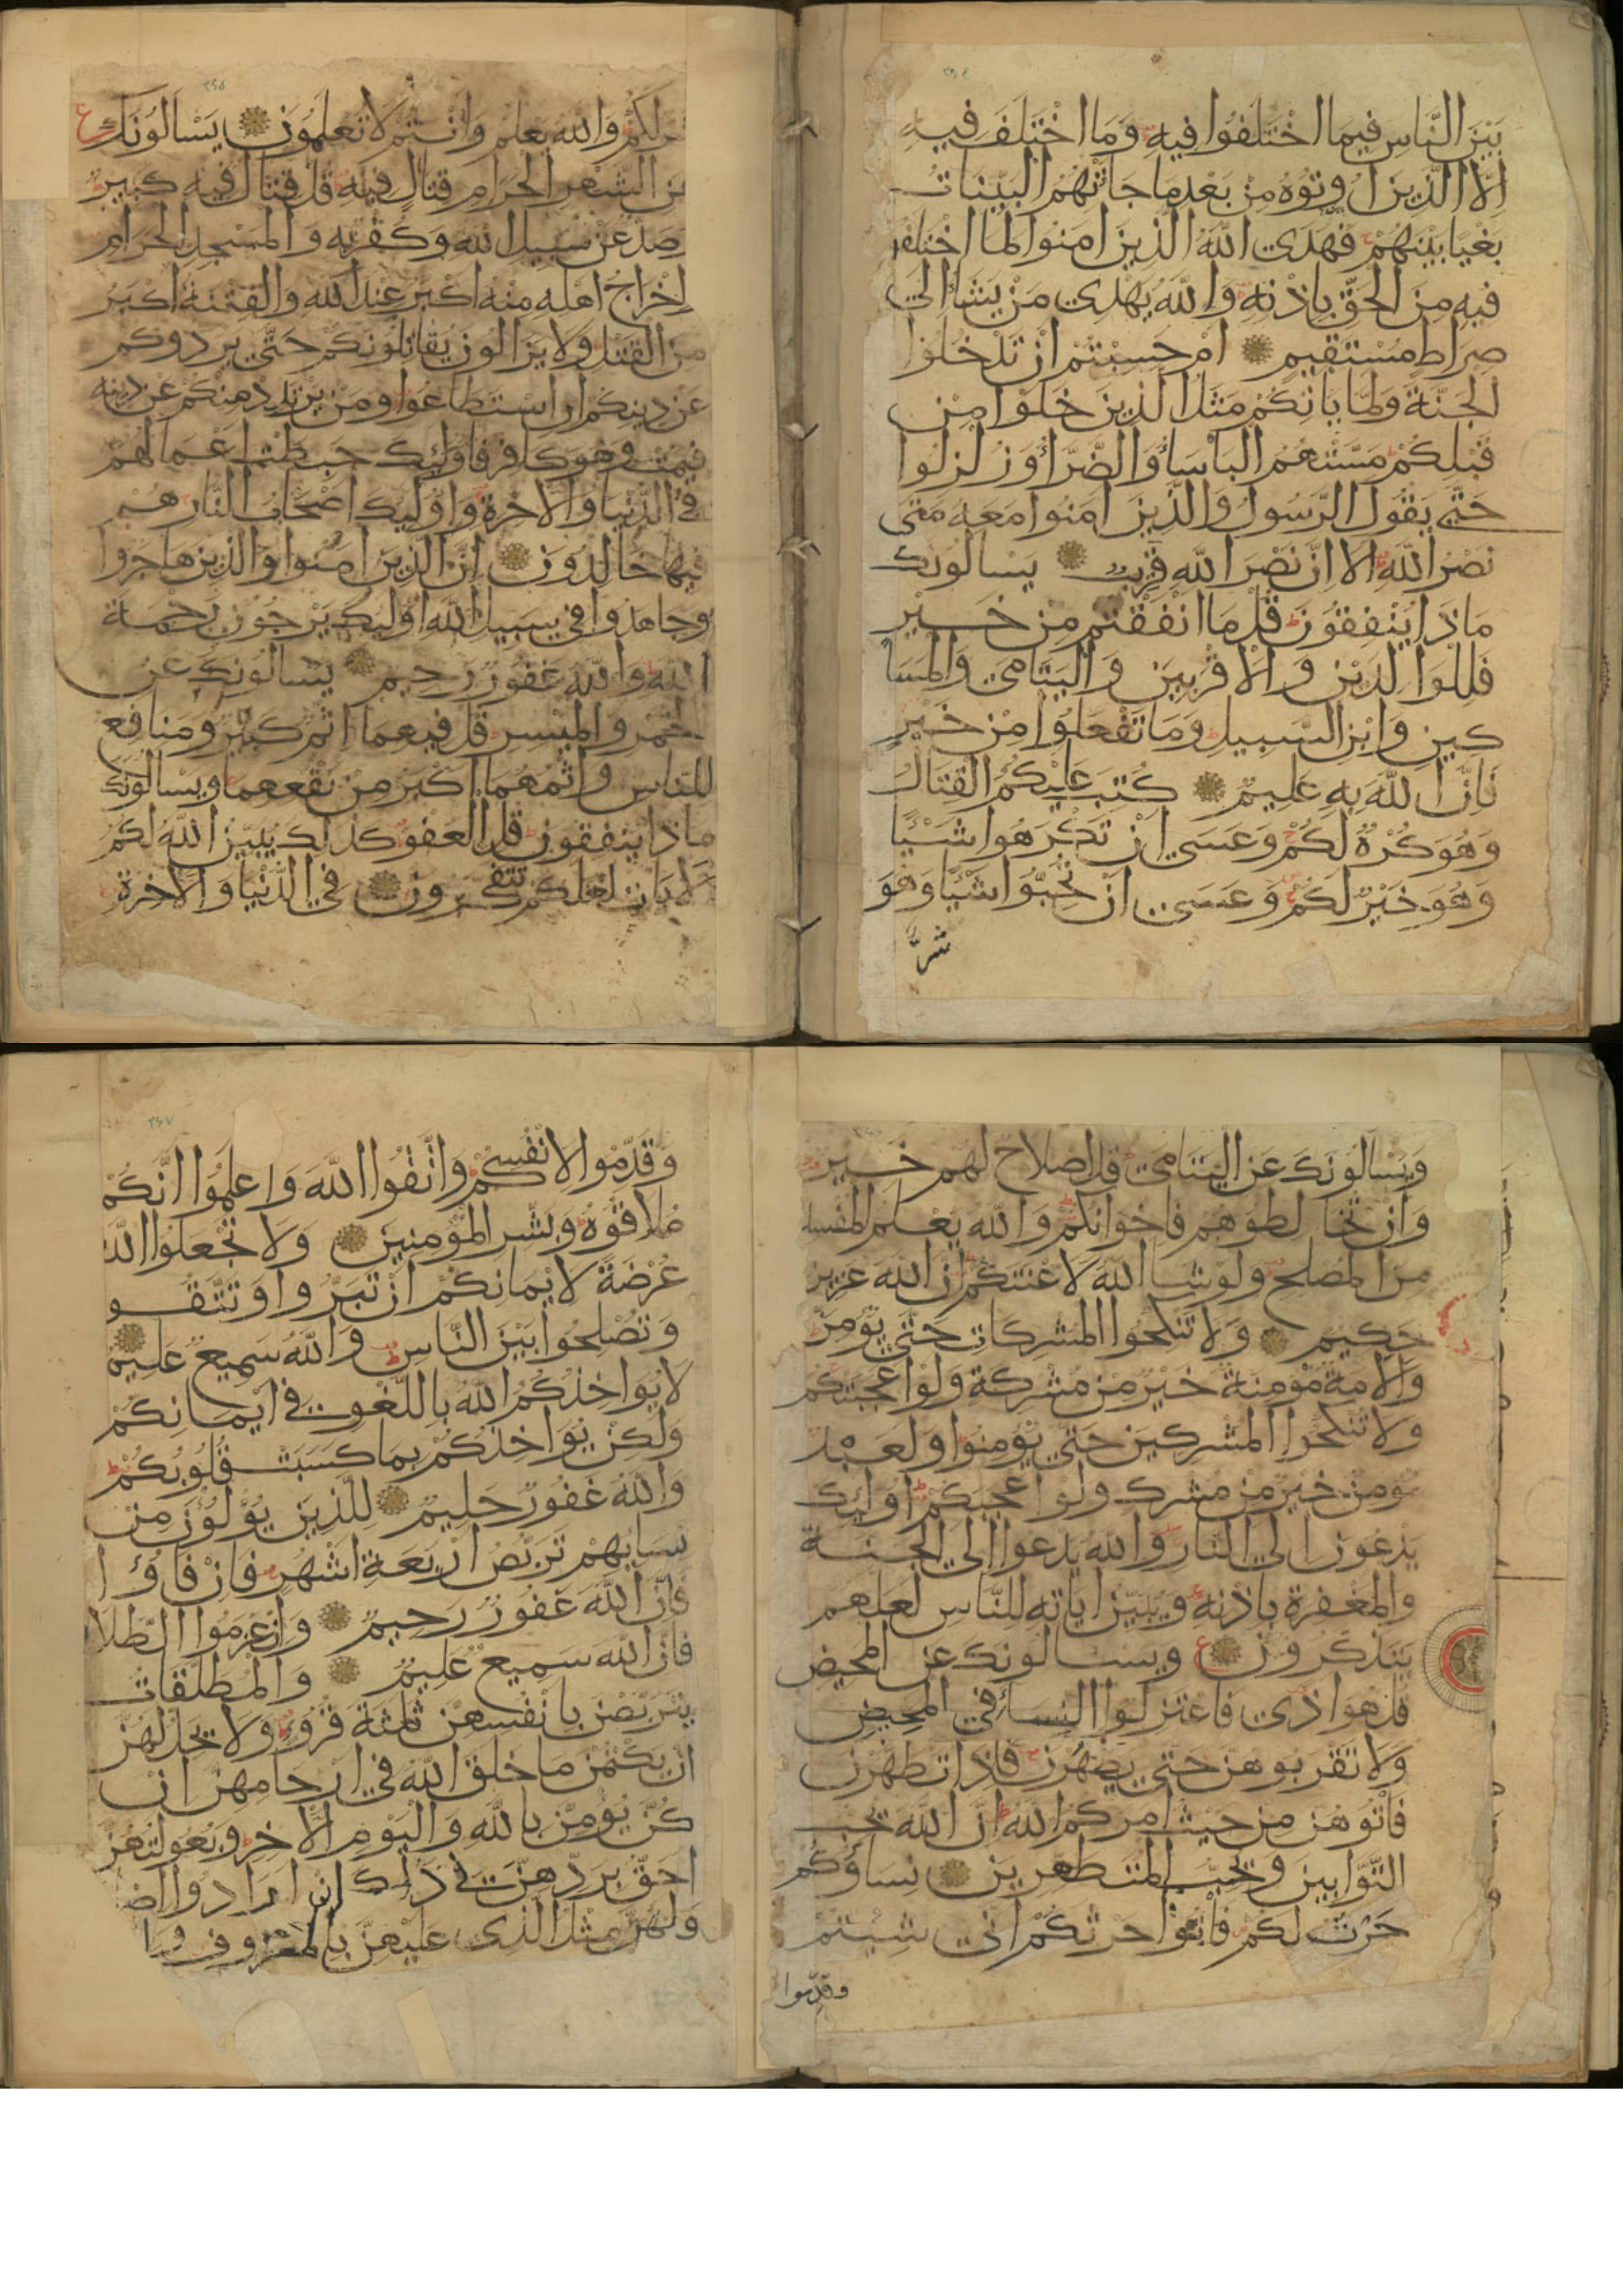 بَيْنَ النَّاسِ فِيمَا اخْتَلَفُوا فِيهِ وَمَا اخْتَلَفَ فِيهِ
اِلَّا الَّذِينَ اُوتُوهُ مِنْ بَعْدِ مَا جَاَتْهُمُ الْبَيِّنَاتُ
بَغْيًا بَيْنَهُمْ فَهَدَى اللهُ الَّذِينَ اٰمَنُوا لِمَا اخْتَلَفُوا
فِيهِ مِنَ الْحَقِّ بِاِذْنِهِ وَاللهُ يَهْدِي مَنْ يَشَاُ اِلَى
صِرَاطٍ مُسْتَقِيمٍ اَمْ حَسِبْتُمْ اَنْ تَدْخُلُوا
الْجَنَّةَ وَلَمَّا يَاْتِكُمْ مَثَلُ الَّذِينَ خَلَوْا مِنْ
قَبْلِكُمْ مَسَّتْهُمُ الْبَاْسَاُ وَالضَّرَّاُ وَزُلْزِلُوا
حَتَّى يَقُولَ الرَّسُولُ وَالَّذِينَ اٰمَنُوا مَعَهُ مَتَى
نَصْرُ اللهِ اَلَا اِنَّ نَصْرَ اللهِ قَرِيبٌ يَسْاَلُونَكَ
مَاذَا يُنْفِقُونَ قُلْ مَا اَنْفَقْتُمْ مِنْ خَيْرٍ
فَلِلْوَالِدَيْنِ وَالْاَقْرَبِينَ وَالْيَتَامَى وَالْمَسَا
كِينِ وَابْنِ السَّبِيلِ وَمَا تَفْعَلُوا مِنْ خَيْرٍ
فَاِنَّ اللهَ بِهِ عَلِيمٌ كُتِبَ عَلَيْكُمُ الْقِتَالُ
وَهُوَ كُرْهٌ لَكُمْ وَعَسَى اَنْ تَكْرَهُوا شَيْئًا
وَهُوَ خَيْرٌ لَكُمْ وَعَسَى اَنْ تُحِبُّوا شَيْئًا وَهُوَ
شَرٌّ
لَكُمْ وَاللهُ يَعْلَمُ وَاَنْتُمْ لَا تَعْلَمُونَ يَسْاَلُونَكَ
الشَّهْرِ الْحَرَامِ قِتَالٍ فِيهِ قُلْ قِتَالٌ فِيهِ كَبِيرٌ
وَصَدٌّ عَنْ سَبِيلِ اللهِ وَكُفْرٌ بِهِ وَالْمَسْجِدِ الْحَرَامِ
اِخْرَاجُ اَهْلِهِ مِنْهُ اَكْبَرُ عِنْدَ اللهِ وَالْفِتْنَةُ اَكْبَرُ
مِنَ الْقَتْلِ وَلَا يَزَالُونَ يُقَاتِلُونَكُمْ حَتَّى يَرُدُّوكُمْ
عَنْ دِينِكُمْ اِنِ اسْتَطَاعُوا وَمَنْ يَرْتَدِدْ مِنْكُمْ عَنْ دِينِهِ
فَيَمُتْ وَهُوَ كَافِرٌ فَاُولَئِكَ حَبِطَتْ اَعْمَالُهُمْ
فِي الدُّنْيَا وَالْاٰخِرَةِ وَاُولَئِكَ اَصْحَابُ النَّارِ هُمْ
فِيهَا خَالِدُونَ اِنَّ الَّذِينَ اٰمَنُوا وَالَّذِينَ هَاجَرُوا
وَجَاهَدُوا فِي سَبِيلِ اللهِ اُولَئِكَ يَرْجُونَ رَحْمَةَ
اللهِ وَاللهُ غَفُورٌ رَحِيمٌ يَسْاَلُونَكَ عَنِ
الْخَمْرِ وَالْمَيْسِرِ قُلْ فِيهِمَا اِثْمٌ كَبِيرٌ وَمَنَافِعُ
لِلنَّاسِ وَاِثْمُهُمَا اَكْبَرُ مِنْ نَفْعِهِمَا وَيَسْاَلُونَكَ
مَاذَا يُنْفِقُونَ قُلِ الْعَفْوَ كَذَلِكَ يُبَيِّنُ اللهُ لَكُمُ
الْاٰيَاتِ لَعَلَّكُمْ تَتَفَكَّرُونَ فِي الدُّنْيَا وَالْاٰخِرَةِ
وَيَسْاَلُونَكَ عَنِ الْيَتَامَى قُلْ اِصْلَاحٌ لَهُمْ خَيْرٌ
وَاِنْ تُخَالِطُوهُمْ فَاِخْوَانُكُمْ وَاللهُ يَعْلَمُ الْمُفْسِدَ
مِنَ الْمُصْلِحِ وَلَوْ شَاَ اللهُ لَاَعْنَتَكُمْ اِنَّ اللهَ عَزِيزٌ
حَكِيمٌ وَلَا تَنْكِحُوا الْمُشْرِكَاتِ حَتَّى يُؤْمِنَّ
وَلَاَمَةٌ مُؤْمِنَةٌ خَيْرٌ مِنْ مُشْرِكَةٍ وَلَوْ اَعْجَبَتْكُمْ
وَلَا تُنْكِحُوا الْمُشْرِكِينَ حَتَّى يُؤْمِنُوا وَلَعَبْدٌ
مُؤْمِنٌ خَيْرٌ مِنْ مُشْرِكٍ وَلَوْ اَعْجَبَكُمْ اُولَئِكَ
يَدْعُونَ اِلَى النَّارِ وَاللهُ يَدْعُوا اِلَى الْجَنَّةِ
وَالْمَغْفِرَةِ بِاِذْنِهِ وَيُبَيِّنُ اٰيَاتِهِ لِلنَّاسِ لَعَلَّهُمْ
يَتَذَكَّرُونَ وَيَسْاَلُونَكَ عَنِ الْمَحِيضِ
قُلْ هُوَ اَذًى فَاعْتَزِلُوا النِّسَاَ فِي الْمَحِيضِ
وَلَا تَقْرَبُوهُنَّ حَتَّى يَطْهُرْنَ فَاِذَا تَطَهَّرْنَ
فَاْتُوهُنَّ مِنْ حَيْثُ اَمَرَكُمُ اللهُ اِنَّ اللهَ يُحِبُّ
التَّوَّابِينَ وَيُحِبُّ الْمُتَطَهِّرِينَ نِسَاؤُكُمْ
حَرْثٌ لَكُمْ فَاْتُوا حَرْثَكُمْ اَنَّى شِئْتُمْ
وقدّموا
وَقَدِّمُوا لِاَنْفُسِكُمْ وَاتَّقُوا اللهَ وَاعْلَمُوا اَنَّكُمْ
مُلَاقُوهُ وَبَشِّرِ الْمُؤْمِنِينَ وَلَا تَجْعَلُوا اللهَ
عُرْضَةً لِاَيْمَانِكُمْ اَنْ تَبَرُّوا وَتَتَّقُوا
وَتُصْلِحُوا بَيْنَ النَّاسِ وَاللهُ سَمِيعٌ عَلِيمٌ
لَا يُؤَاخِذُكُمُ اللهُ بِاللَّغْوِ فِي اَيْمَانِكُمْ
وَلَكِنْ يُؤَاخِذُكُمْ بِمَا كَسَبَتْ قُلُوبُكُمْ
وَاللهُ غَفُورٌ حَلِيمٌ لِلَّذِينَ يُؤْلُونَ مِنْ
نِسَائِهِمْ تَرَبُّصُ اَرْبَعَةِ اَشْهُرٍ فَاِنْ فَاؤُا
فَاِنَّ اللهَ غَفُورٌ رَحِيمٌ وَاِنْ عَزَمُوا الطَّلَا
فَاِنَّ اللهَ سَمِيعٌ عَلِيمٌ وَالْمُطَلَّقَاتُ
يَتَرَبَّصْنَ بِاَنْفُسِهِنَّ ثَلٰثَةَ قُرُوءٍ وَلَا يَحِلُّ لَهُنَّ
اَنْ يَكْتُمْنَ مَا خَلَقَ اللهُ فِي اَرْحَامِهِنَّ اِنْ
كُنَّ يُؤْمِنَّ بِاللهِ وَالْيَوْمِ الْاٰخِرِ وَبُعُولَتُهُنَّ
اَحَقُّ بِرَدِّهِنَّ فِي ذَلِكَ اِنْ اَرَادُوا
وَلَهُنَّ مِثْلُ الَّذِي عَلَيْهِنَّ بِالْمَعْرُوفِ